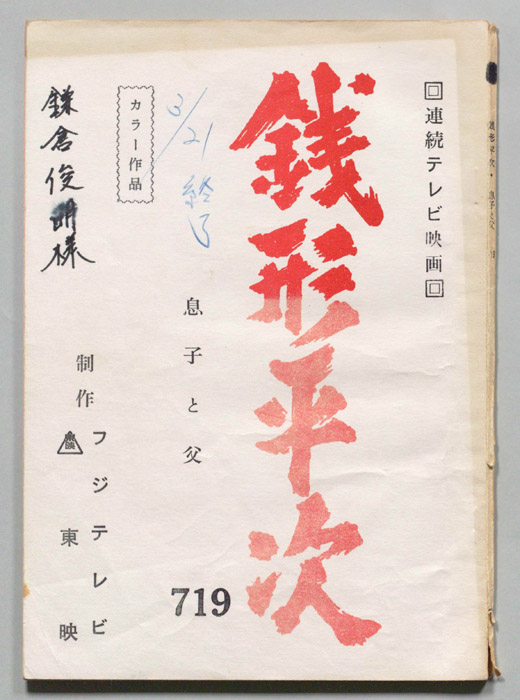 回連続テレビ映画回
銭形平次
3/21 終了
息子と父
719
カラー作品
鎌倉俊明様
制作
フジテレビ
東映
銭形平次・息子と父